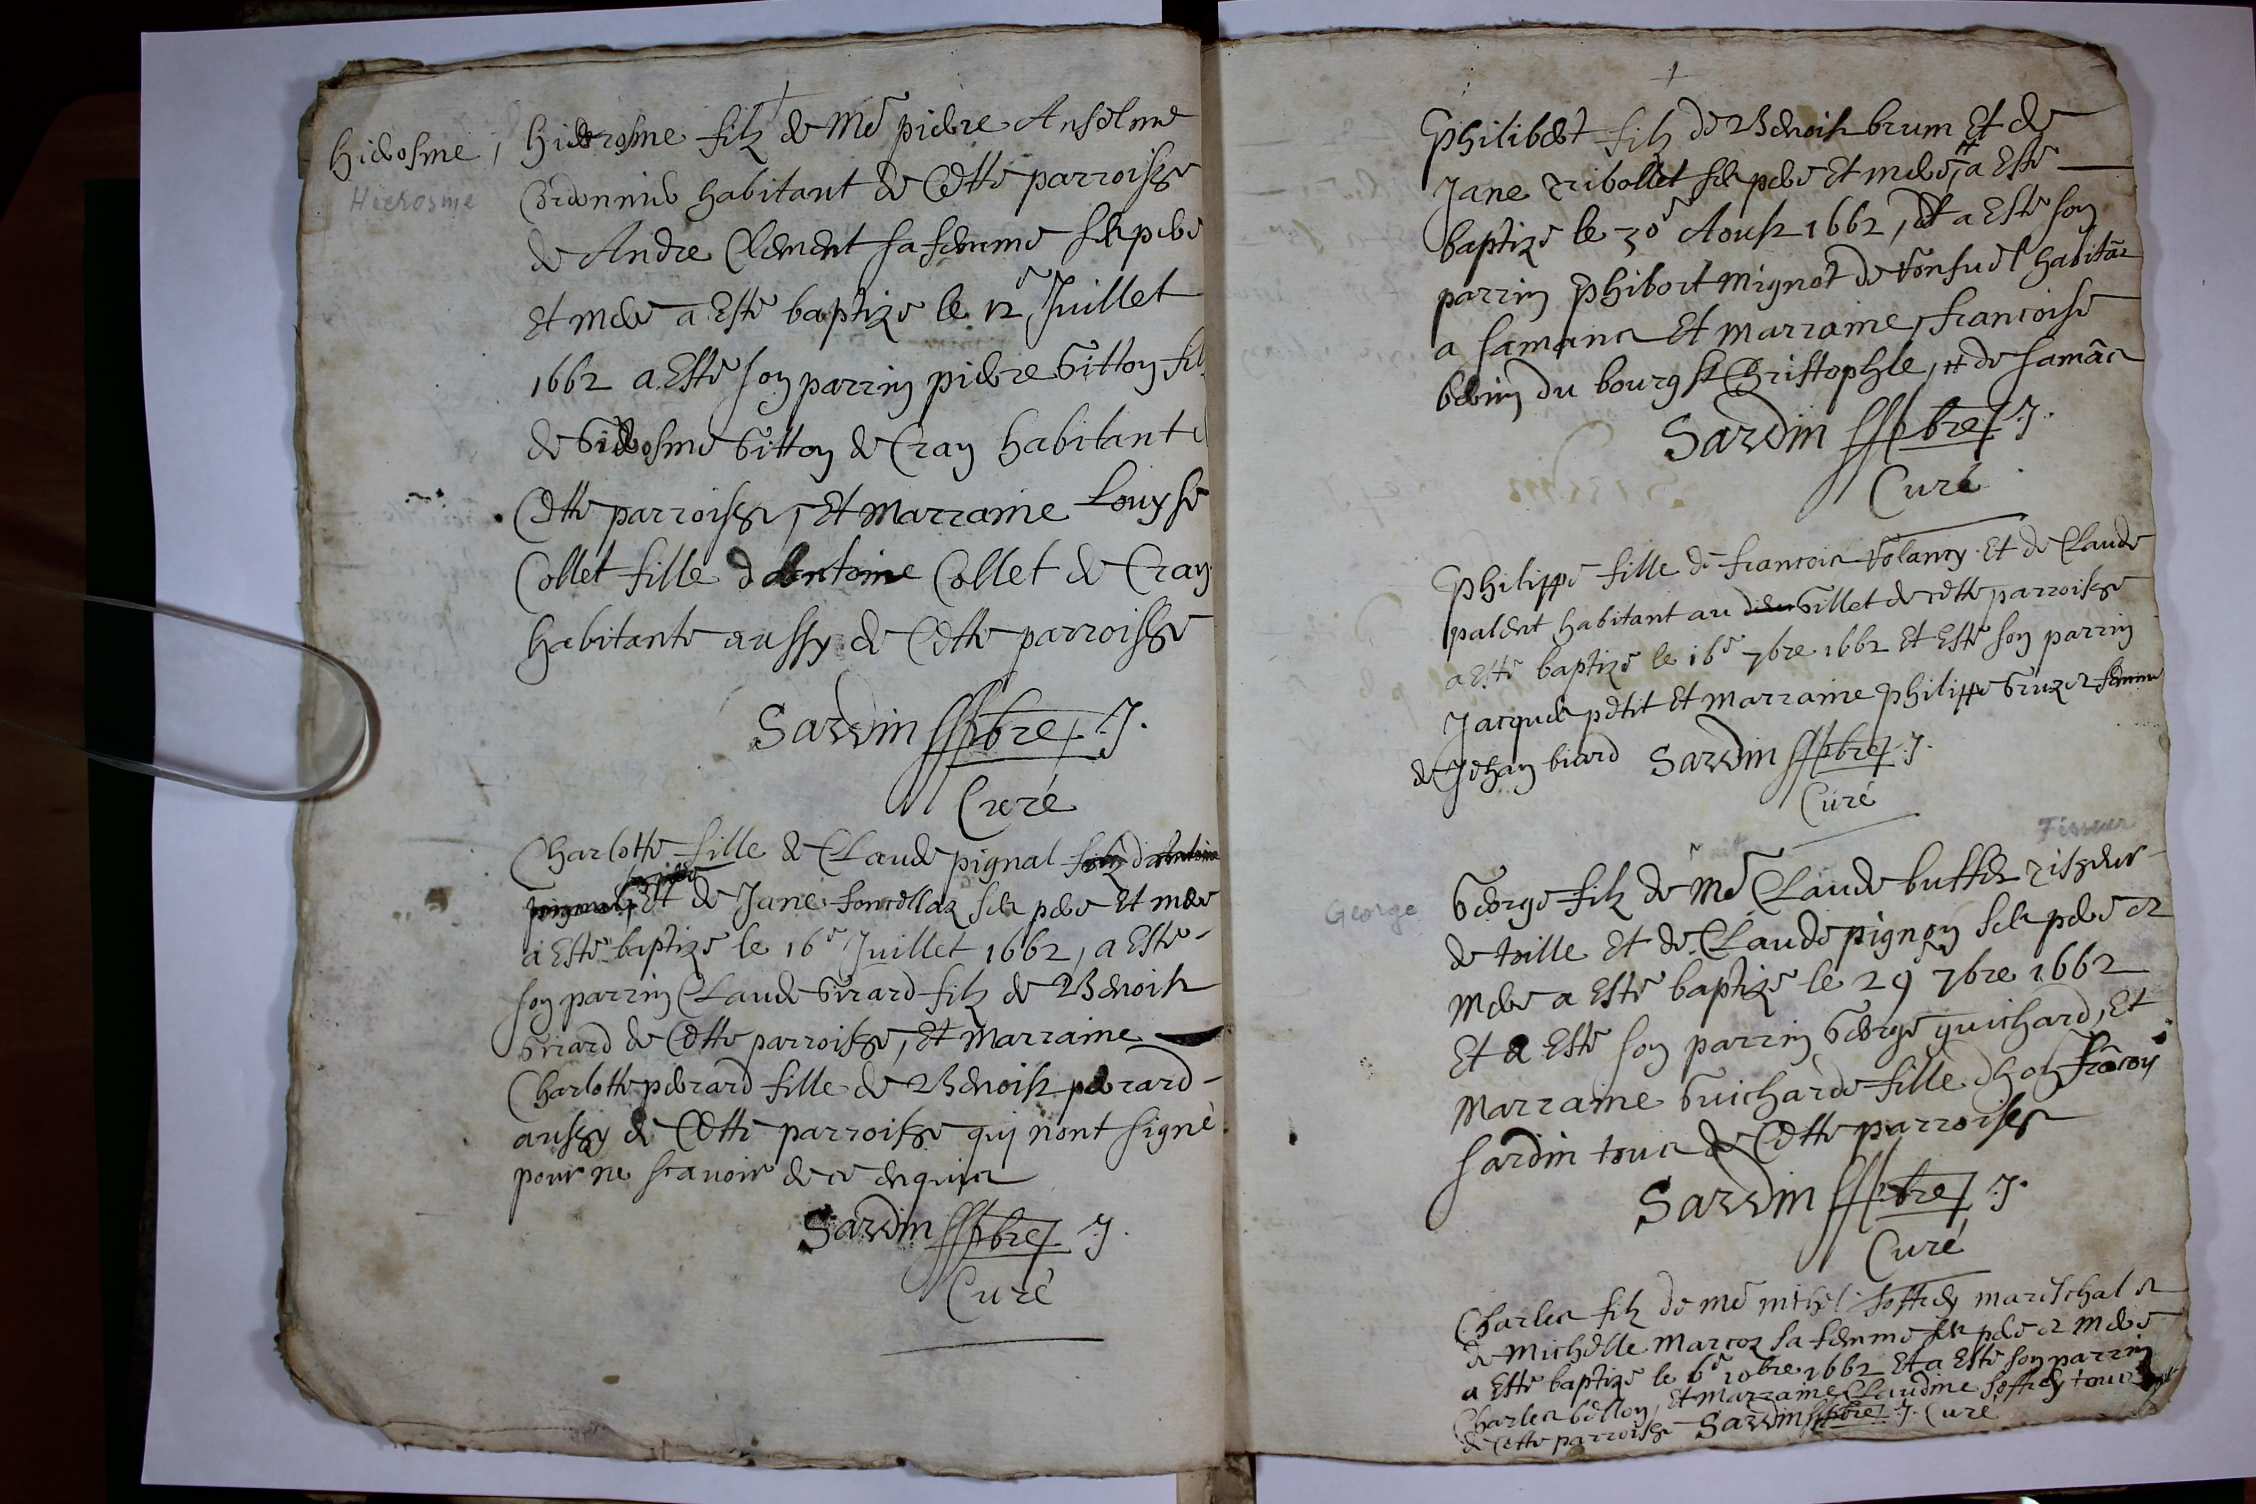 hierosme /
Hierosme
hierosme filz de Me pierre Anselme
Cordonnier habitant de Cette parroisse
de Andre Clement sa femme ses pere
Et mere a Esté baptizé le 12e Juillet
1662 a Esté son parrin pierre Gitton filz
de Gierosme Gitton de Cray habitant d
Cette parroisse, Et Marraine Louyse
Collet fille d Antoine Collet de Cray
habitante aussy de Cette parroisse
Sardin pbre J.
Curé
Charlotte fille de Claude pignal
Et de Jane ses pere Et mere
a Esté baptizé le 16e Juillet 1662, a Esté
son parrin Claude Girard filz de Benoist
Girard de Cette parroisse, Et Marraine
Charlotte perard fille de Benoist perard
aussy de Cette parroisse quj nont signé
pour ne scavoir de ce enquis
Sardin pbre J.
Curé
Philibert filz de Benoist brum Et de
Jane Tribollet ses pere Et mere, a Esté
baptizé le 30e Aoust 1662, Et a Esté son
parrin Phibert Mignot de habitãt
a Et Marraine, francoise
du bourg St Christophle, # de
Sardin pbre J.
Curé
Philippe fille de francois Volancy Et de Claude
palent habitant au Gillet de cette parroisse
a Esté baptizé le 16e 7bre 1662 Et Esté son parrin
Jacques petit Et Marraine Philippe femme
de Jehan buard Sardin pbre J.
Curé
Tisseur
George
George filz de Me Claude buffet tisseur
de toille Et de Claude pignon ses pere et
Mere a Esté baptizé le 29 7bre 1662
Et a Esté son parrin George guichard, Et
Marraine Guicharde fille dhon frãcoys
sardin tous de Cette parroisse
Sardin pbre J.
Curé
Charles filz de Me michel mareschal et
de Michelle Marcoz sa femme ses pere et Mere
a Esté baptizé le 6e 10bre 1662 Et a Esté son parrin
Charles bellon, Et Marraine Claudine tous
de Cette parroisse Sardin pbre J. Curé